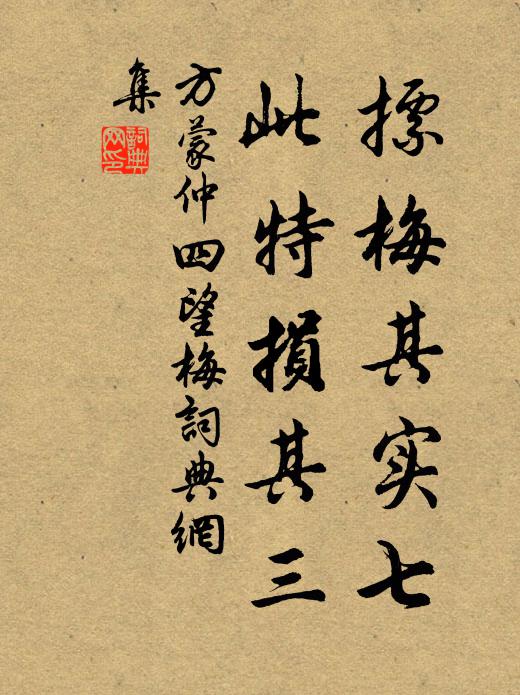 摽梅其实七
此特損其三
方蒙仲四望梅詞典網
集
詞典
网印